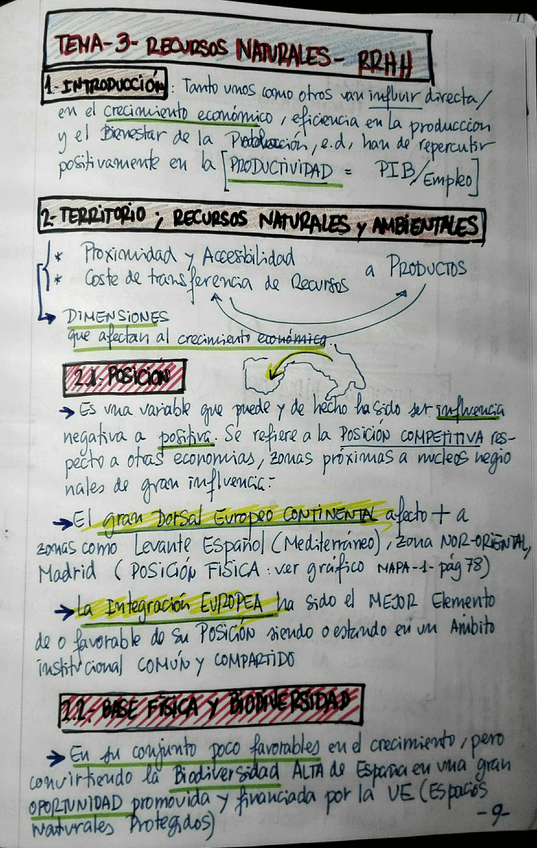 TEMA-3- RECURSOS NATURALES- RRHH
1.-INTRODUCCIÓN: Tanto unos como otros van influir directa/
en el crecimiento económico, eficiencia en la producción
y el Bienestar de la Población, e.d, han de repercutir
positivamente en la [PRODUCTIVIDAD = PIB/Empleo]
2.-TERRITORIO; RECURSOS NATURALES y AMBIENTALES
* Proximidad y Accesibilidad
* Coste de transferencia de Recursos a PRODUCTOS
→ DIMENSIONES
que afectan al crecimiento económico.
2.1.-POSICIÓN
→ Es una variable que puede y de hecho ha sido ser influencia
negativa a positiva. Se refiere a la POSICIÓN COMPETITIVA res-
pecto a otras economías, zonas próximas a nucleos negio
nales de gran influencia:-
→ El gran Dorsal Europeo CONTINENTAL afecto + a
zonas como Levante Español (Mediterráneo), zona NOR-ORIENTAL,
Madrid (POSICIÓN FÍSICA: ver gráfico MAPA-1-pág 78)
→ La Integración EUROPEA ha sido el MEJOR Elemento
de o favorable de su POSICIÓN siendo o estando en un Ambito
institucional COMÚN Y COMPARTIDO
2.2.- BASE FÍSICA Y BIODIVERSIDAD
→ En su conjunto poco favorables en el crecimiento, pero
convirtiendo la Biodiversidad ALTA de España en una gran
OPORTUNIDAD promovida y financiada por la UE (Espacios
Naturales Protegidos)
-9-